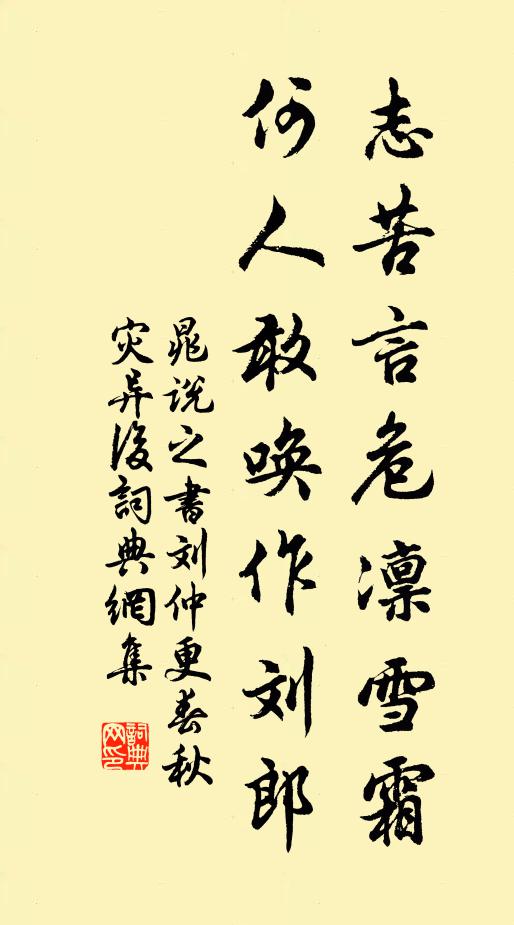 志苦言危凛雪霜
何人敢唤作刘郎
晁说之书刘仲更春秋
灾异後詞典網集
詞典网印